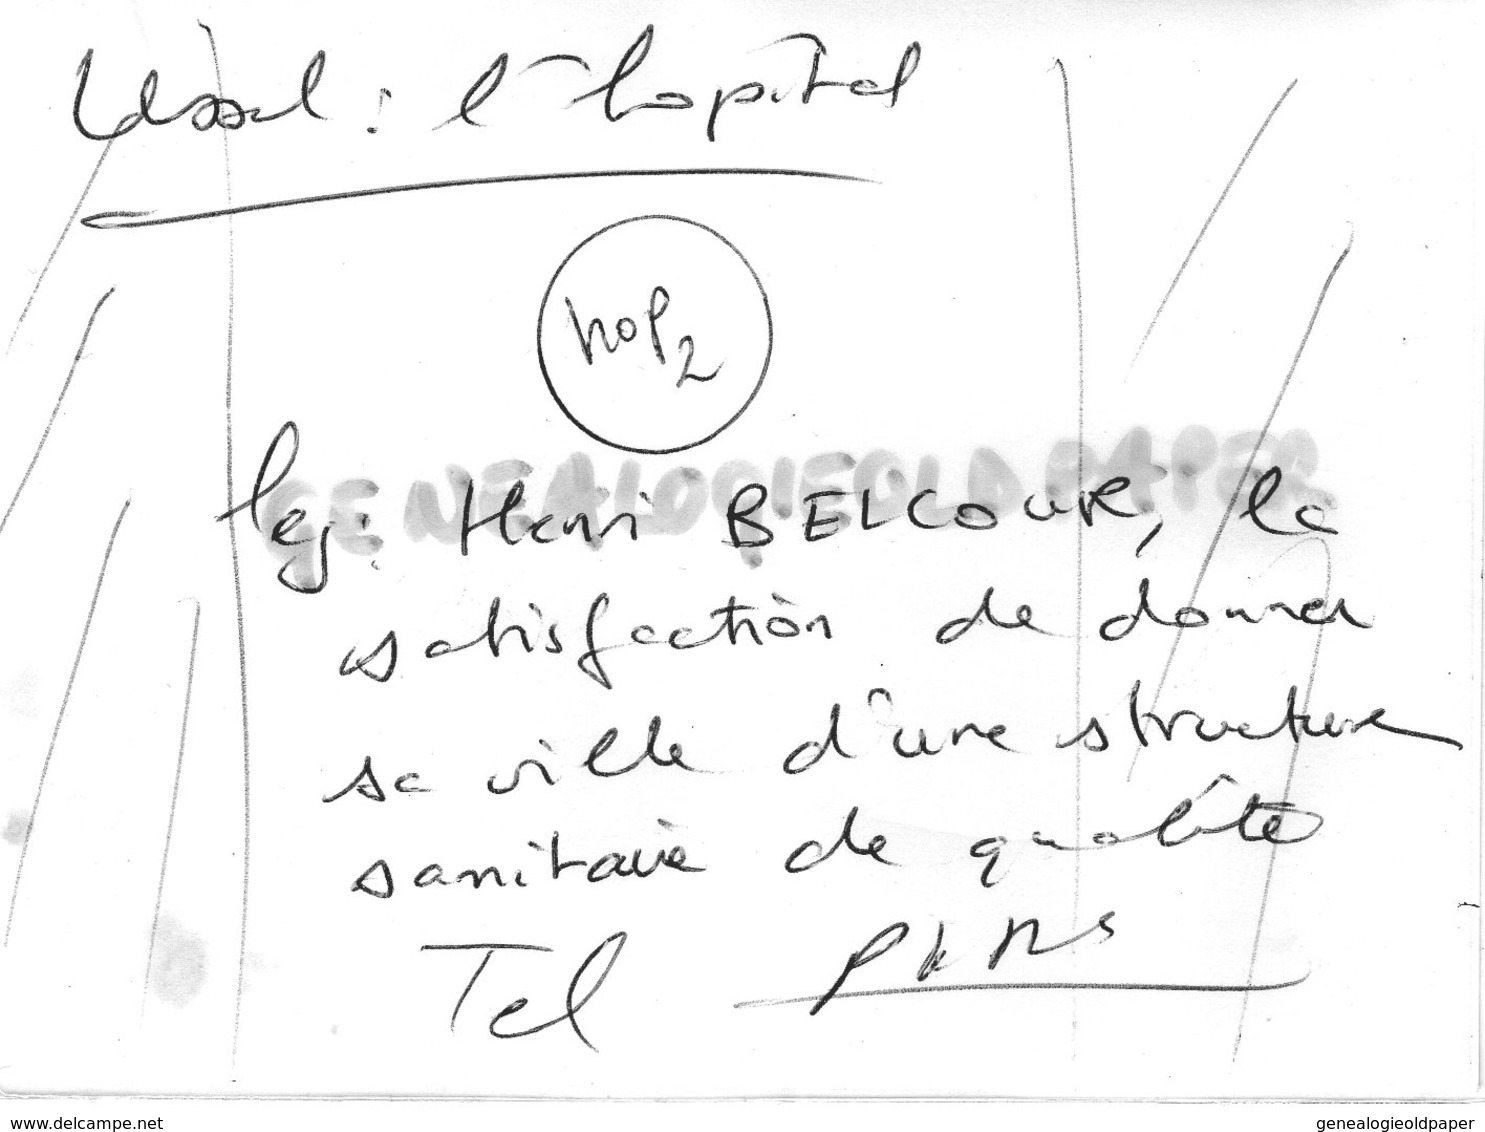 Ussel : l'hopital
hop 2
GENEALOGIEOLDPAPER
leg : Henri BELCOUR, la
satisfaction de donner
sa ville d'une structure
sanitaire de qualité
Tel
www.delcampe.net
genealogieoldpaper